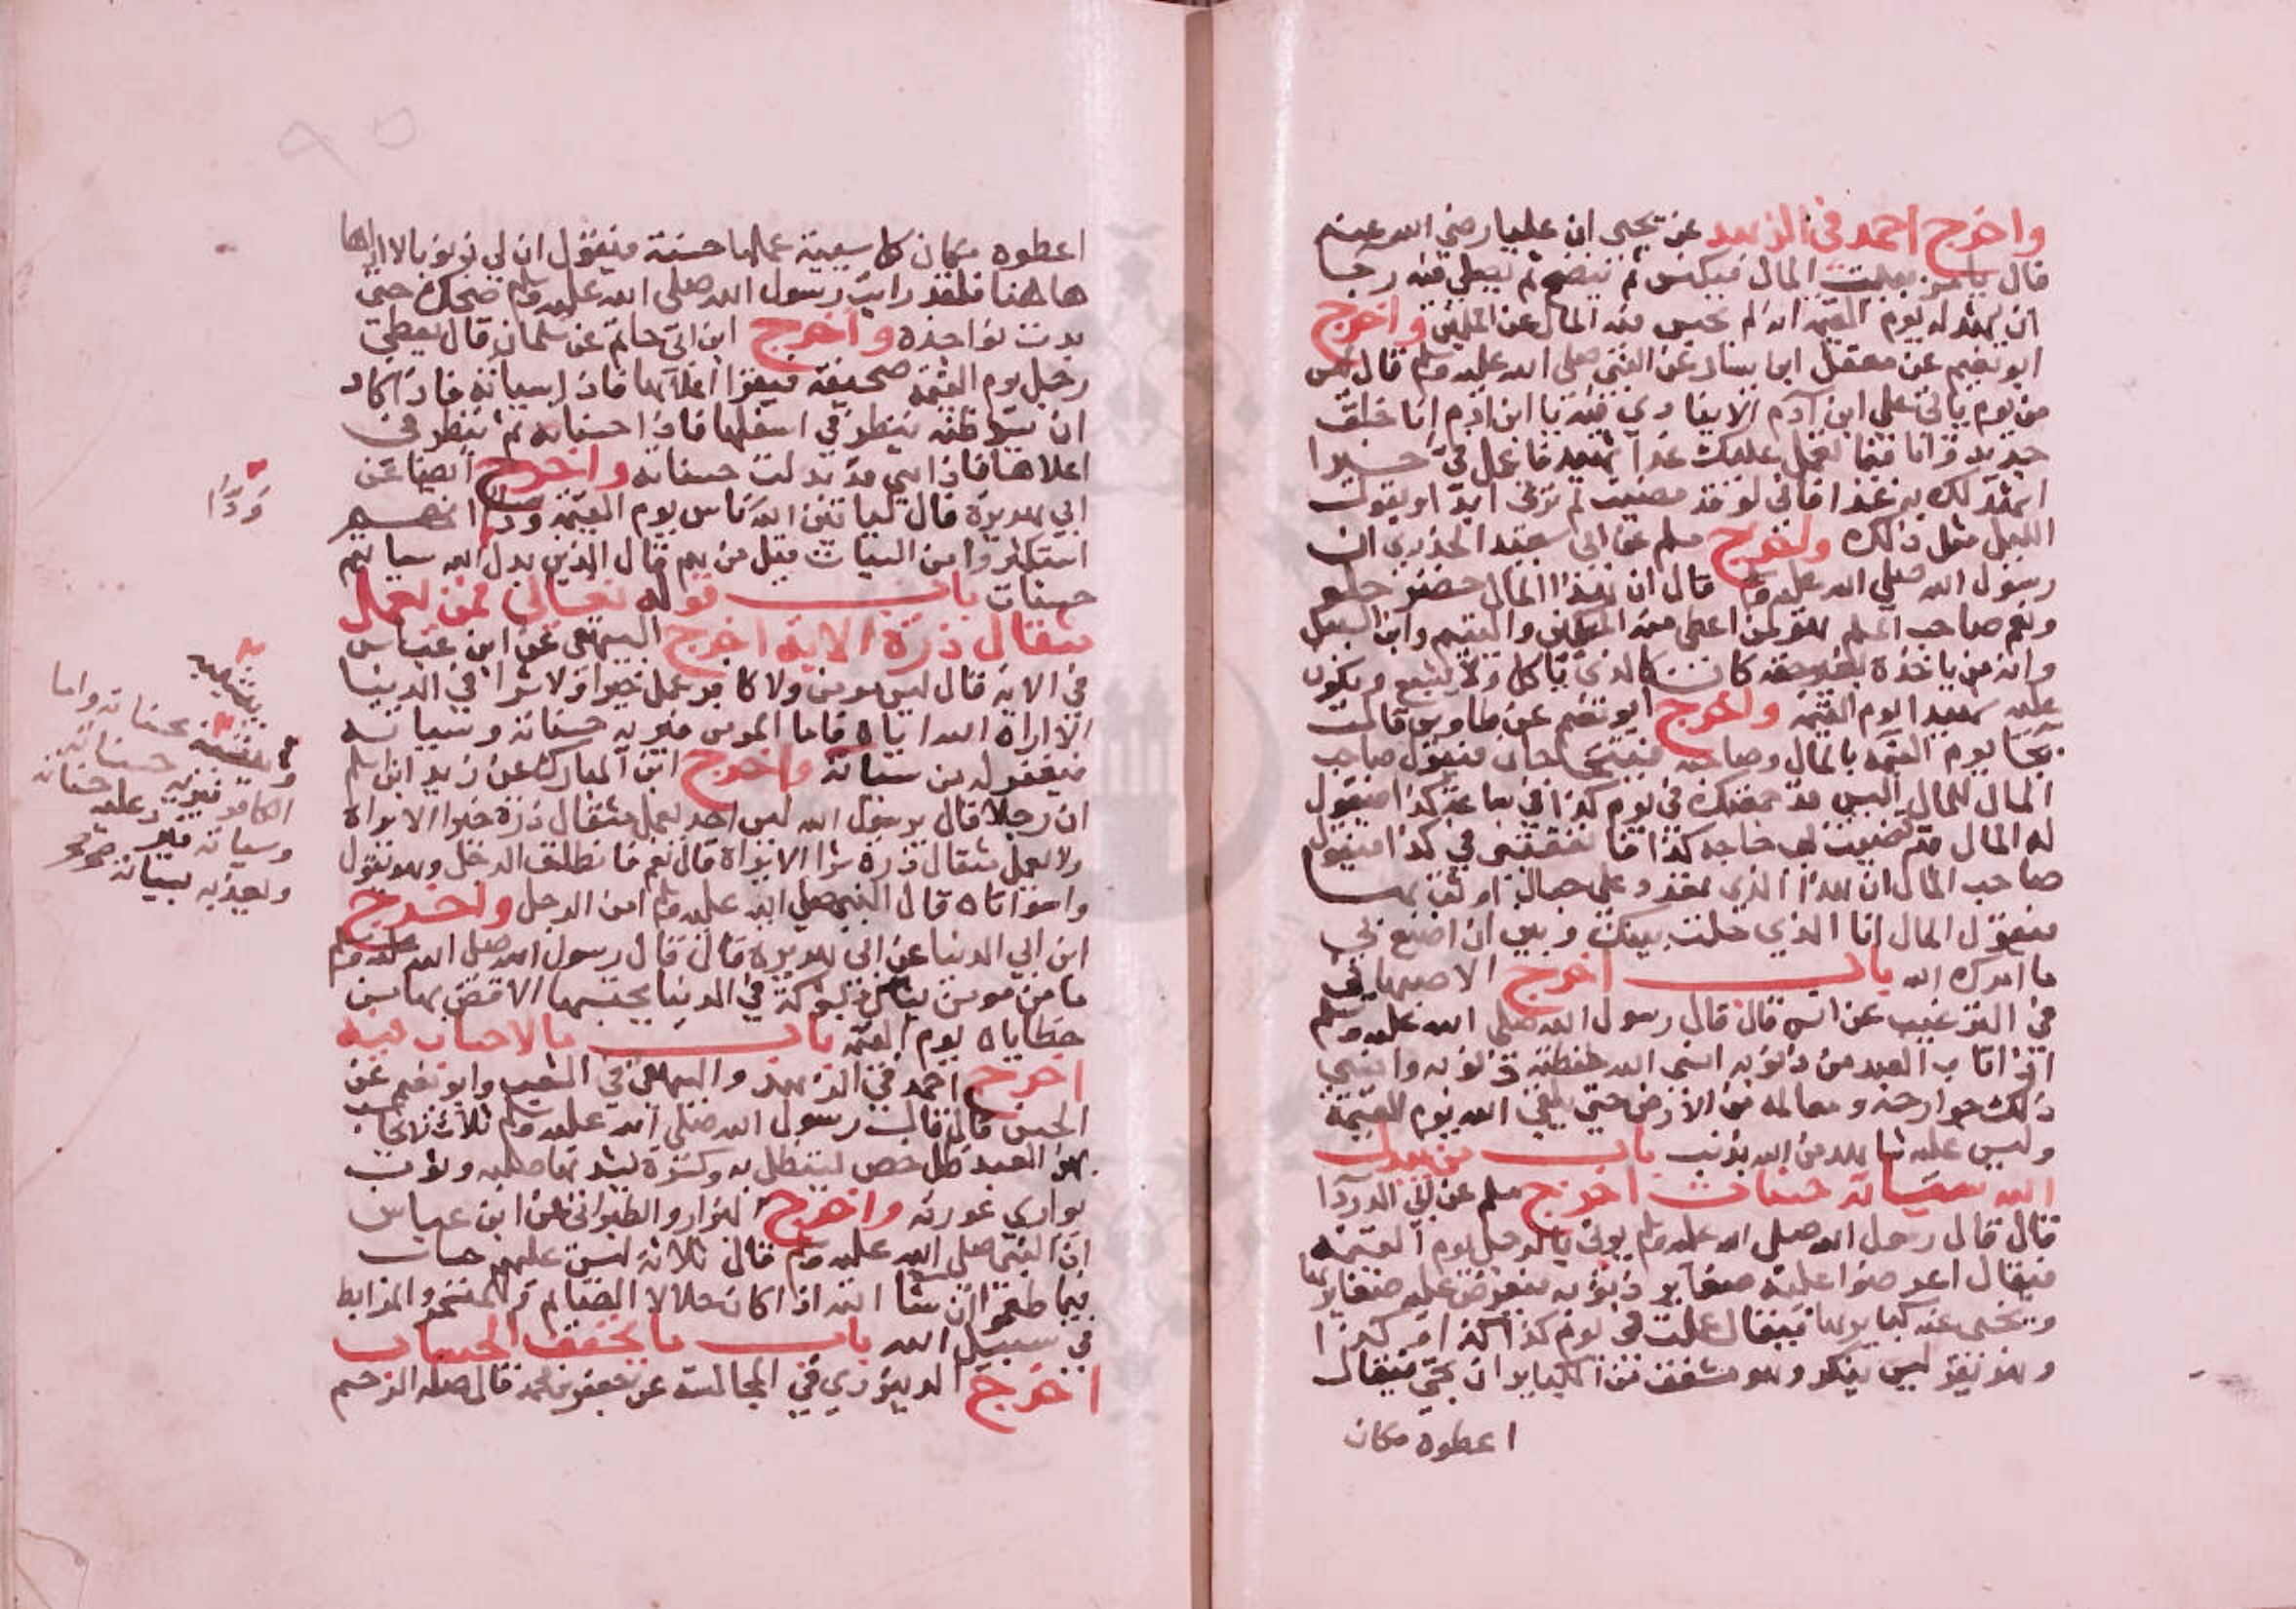 واخرج احمد في الزهد عن يحيى ان عليا رضي الله عنه
قال يامر ببيت المال فيكنس ثم ينضح ثم يصلي فيه رجا
ان يشهد له يوم القيمة انه لم يحبس فيه المال عن المسلمين واخرج
ابو نعيم عن معقل ابن يسار عن النبي صلى الله عليه وسلم قال ليس
من يوم ياتي على ابن آدم الا ينادي فيه يا ابن ادم انا خلق
جديد وانا فيما تعمل عليك غدا شهيد فاعمل في خيرا
اشهد لك به غدا فاني لو قد مضيت لم ترني ابدا ويقول
الليل مثل ذلك واخرج مسلم عن ابي سعيد الخدري ان
رسول الله صلى الله عليه وسلم قال ان هذا المال خضر حلو
ونعم صاحب المسلم هو لمن اعطى منه المسكين واليتيم وابن السبيل
وانه من ياخذه بغير حقه كان كالذي ياكل ولا يشبع ويكون
عليه شهيدا يوم القيمة واخرج ابو نعيم عن طاوس قال
يجا يوم القيمة بالمال وصاحبه فيتحاجان فيقول صاحب
المال للمال اليس قد جمعتك في يوم كذا في ساعة كذا فيقول
له المال قد قضيت بي حاجة كذا وانفقتني في كذا فيقول
صاحب المال ان هذا الذي تعدد علي حبال اوثق بها
فيقول المال انا الذي حلت بينك وبين ان اصنع بي
ما امرك الله باب اخرج الاصبهاني
في الترغيب عن انس قال قال رسول الله صلى الله عليه وسلم
اذا تاب العبد من ذنوبه انسى الله حفظته ذنوبه وانسي
ذلك جوارحه ومعالمه من الارض حتى يلقى الله يوم القيمة
وليس عليه شاهد من الله بذنب باب من يبدل
الله سيئاته حسنات اخرج مسلم عن ابي الدردا
قال قال رسول الله صلى الله عليه وسلم يوتى بالرجل يوم القيمة
فيقال اعرضوا عليه صغاير ذنوبه فيعرض عليه صغايرها
ويخبى عنه كبايرها فيقال عملت في يوم كذا كذا وكذا
وهو يقر ليس ينكر وهو مشفق من الكباير ان تجي فيقال
اعطوه مكان
اعطوه مكان كل سيية عملها حسنة فيقول ان لي ذنوبا لا اراها
هاهنا فلقد رايت رسول الله صلى الله عليه وسلم ضحك حتى
بدت نواجذه واخرج ابن ابي حاتم عن سلمان قال يعطى
رجل يوم القيمة صحيفة فيقرا اعلاها فاذا سيياته فاذا كاد
ان يسو ظنه ينظر في اسفلها فاذا حسناته ثم ينظر في
اعلاها فاذا هي قد بدلت حسنات واخرج ايضا عن
ابي هريرة قال لياتين الله ناس يوم القيمة ودوا انهم
استكثروا من السيات قيل من هم قال الذين بدل الله سياتهم
حسنات باب قوله تعالى فمن يعمل
مثقال ذرة الاية اخرج البيهقي عن ابن عباس
في الاية قال ليس مومن ولا كافر عمل خيرا ولا شرا في الدنيا
الا اراه الله اياه فاما المومن فيريه حسناته وسياته
فيغفر له من سياته واخرج ابن المبارك عن زيد ابن اسلم
ان رجلا قال يرسول الله ليس احد يعمل مثقال ذرة خيرا الا يراه
ولا يعمل مثقال ذرة شرا الا يراه قال نعم فانطلق الرجل وهو يقول
واسوأتاه قال النبي صلى الله عليه وسلم امن الرجل واخرج
ابن ابي الدنيا عن ابي هريرة قال قال رسول الله صلى الله عليه وسلم
ما من مومن يشاك شوكة في الدنيا يحتسبها الا قص بها من
خطاياه يوم القيمة باب ما لا حساب فيه
اخرج احمد في الزهد والبيهقي في الشعب وابو نعيم عن
الحسن قال قال رسول الله صلى الله عليه وسلم ثلاث لا يحاسب
بهن العبد ظل خص يستظل به وكسرة يشد بها صلبه وثوب
يواري عورته واخرج البزار والطبراني عن ابن عباس
ان النبي صلى الله عليه وسلم قال ثلاثة ليس عليهم حساب
فيما طعموا ان شا الله اذا كان حلالا الصايم والمتسحر والمرابط
في سبيل الله باب ما يخفف الحساب
اخرج الدينوري في المجالسة عن جعفر بن محمد قال صلة الرحم
ودوا
حسناته واما
الكافر فيريه حسناته
وسياته فيرد عليه حسناته
ويعذبه بسياته صح